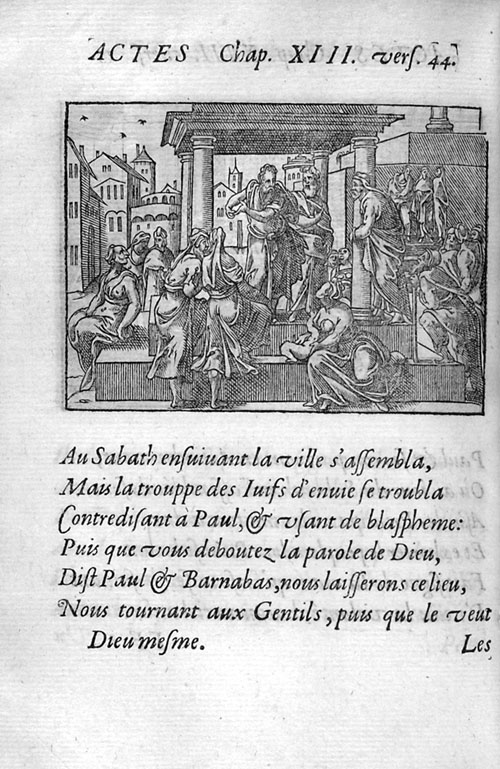 ACTES Chap. XIII. verſ. 44.
Au Sabath enſuiuant la ville s'aſſembla,
Mais la trouppe des Iuifs d'enuie ſe troubla
Contrediſant à Paul, & vſant de blaſpheme:
Puis que vous deboutez la parole de Dieu,
Diſt Paul & Barnabas, nous laiſſerons ce lieu,
Nous tournant aux Gentils, puis que le veut
Dieu meſme.
Les